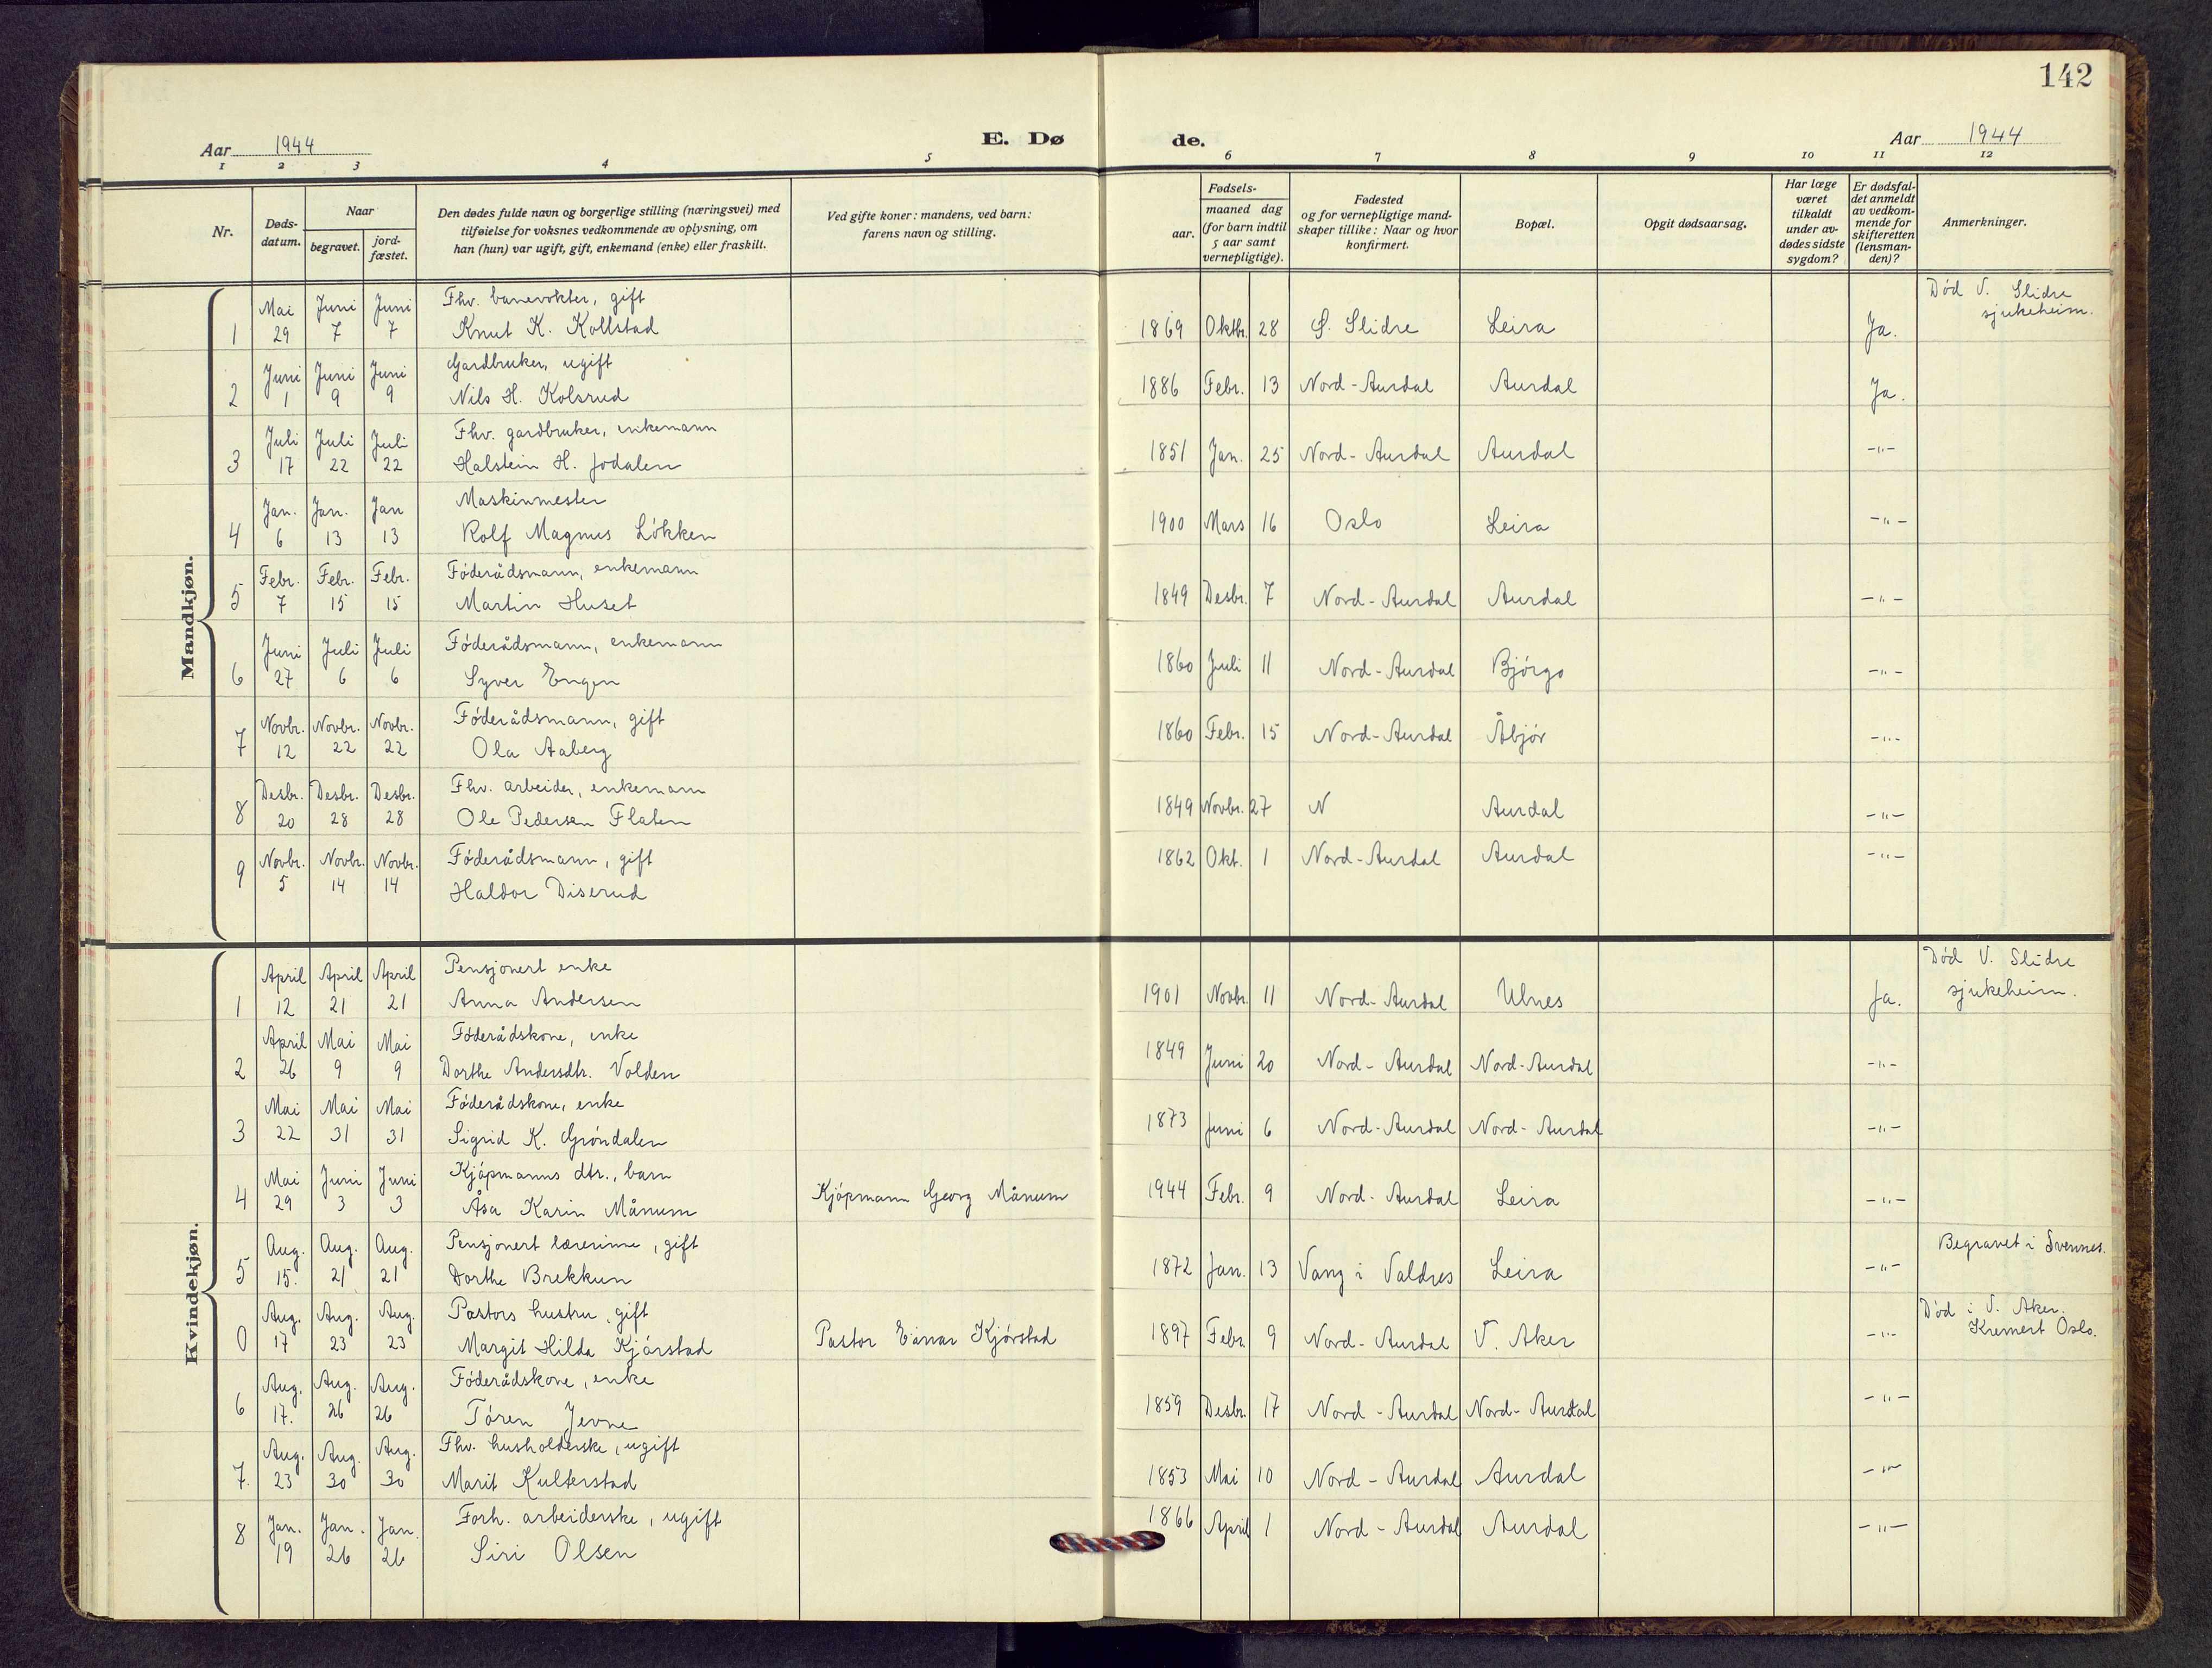 142
Aar 1944
E. Dø
de.
Aar 1944
1 2 3 4 5 6 7 8 9 10 11 12
Nr.
Døds-
datum.
Naar
begravet.
jord-
fæstet.
Den dødes fulde navn og borgerlige stilling (næringsvei) med
tilføielse for voksnes vedkommende av oplysning, om
han (hun) var ugift, gift, enkemand (enke) eller fraskilt.
Ved gifte koner: mandens, ved barn:
farens navn og stilling.
Fødsels-
aar.
maaned dag
(for barn indtil
5 aar samt
vernepligtige).
Fødested
og for vernepligtige mand-
skaper tillike: Naar og hvor
konfirmert.
Bopæl.
Opgit dødsaarsag.
Har læge
været
tilkaldt
under av-
dødes sidste
sygdom?
Er dødsfal-
det anmeldt
av vedkom-
mende for
skifteretten
(lensman-
den)?
Anmerkninger.
Mandkjøn.
Mai Juni Juni Fhv. banevokter, gift Død V. Slidre
1 29 7 7 Knut K. Kollstad 1869 Oktbr. 28 S. Slidre Leira Ja. sjukeheim.
Juni Juni Juni Gardbruker, ugift
2 1 9 9 Nils H. Kolsrud 1886 Febr. 13 Nord-Aurdal Aurdal Ja.
Juli Juli Juli Fhv. gardbruker, enkemann
3 17 22 22 Halstein H. Jodalen 1851 Jan. 25 Nord-Aurdal Aurdal -"-
Jan. Jan. Jan Maskinmester
4 6 13 13 Rolf Magnus Løkken 1900 Mars 16 Oslo Leira -"-
Febr. Febr. Febr. Føderådsmann, enkemann
5 7 15 15 Martin Huset 1849 Desbr. 7 Nord-Aurdal Aurdal -"-
Juni Juli Juli Føderådsmann, enkemann
6 27 6 6 Syver Engen 1860 Juli 11 Nord-Aurdal Bjørgo -"-
Novbr. Novbr. Novbr. Føderådsmann, gift
7 12 22 22 Ola Aaberg 1860 Febr. 15 Nord-Aurdal Åbjør -"-
Desbr. Desbr. Desbr. Fhv. arbeider, enkemann
8 20 28 28 Ole Pedersen Flaten 1849 Novbr. 27 N Aurdal -"-
Novbr. Novbr. Novbr. Føderådsmann, gift 1862 Okt. 1 Nord-Aurdal Aurdal -"-
9 5 14 14 Haldor Diserud
Kvindekjøn.
April April April Pensjonert enke Død V. Slidre
1 12 21 21 Anna Andersen 1901 Novbr. 11 Nord-Aurdal Ulnes Ja. sjukeheim.
April Mai Mai Føderådskone, enke
2 26 9 9 Dorthe Andersdtr. Volden 1849 Juni 20 Nord-Aurdal Nord-Aurdal -"-
Mai Mai Mai Føderådskone, enke
3 22 31 31 Sigrid K. Grøndalen 1873 Juni 6 Nord-Aurdal Nord-Aurdal -"-
Mai Juni Juni Kjøpmanns dtr., barn
4 29 3 3 Åsa Karin Månum Kjøpmann Georg Månum 1944 Febr. 9 Nord-Aurdal Leira -"-
Aug. Aug. Aug. Pensjonert lærerinne, gift Begravet i Svennes.
5 15. 21 21 Dorthe Brekkun 1872 Jan. 13 Vang i Valdres Leira -"-
Aug. Aug. Aug. Pastors hustru, gift Død i V. Aker.
0 17 23 23 Margit Hilda Kjørstad Pastor Einar Kjørstad 1897 Febr. 9 Nord-Aurdal V. Aker -"- Kremert Oslo.
Aug. Aug. Aug. Føderådskone, enke
6 17. 26 26 Tøren Jevne 1859 Desbr. 17 Nord-Aurdal Nord-Aurdal -"-
Aug. Aug. Aug. Fhv. husholderske, ugift
7. 23 30 30 Marit Kulterstad 1853 Mai 10 Nord-Aurdal Aurdal -"-
Jan. Jan. Jan. Forh. arbeiderske, ugift
8 19 26 26 Siri Olsen 1866 April 1 Nord-Aurdal Aurdal -"-